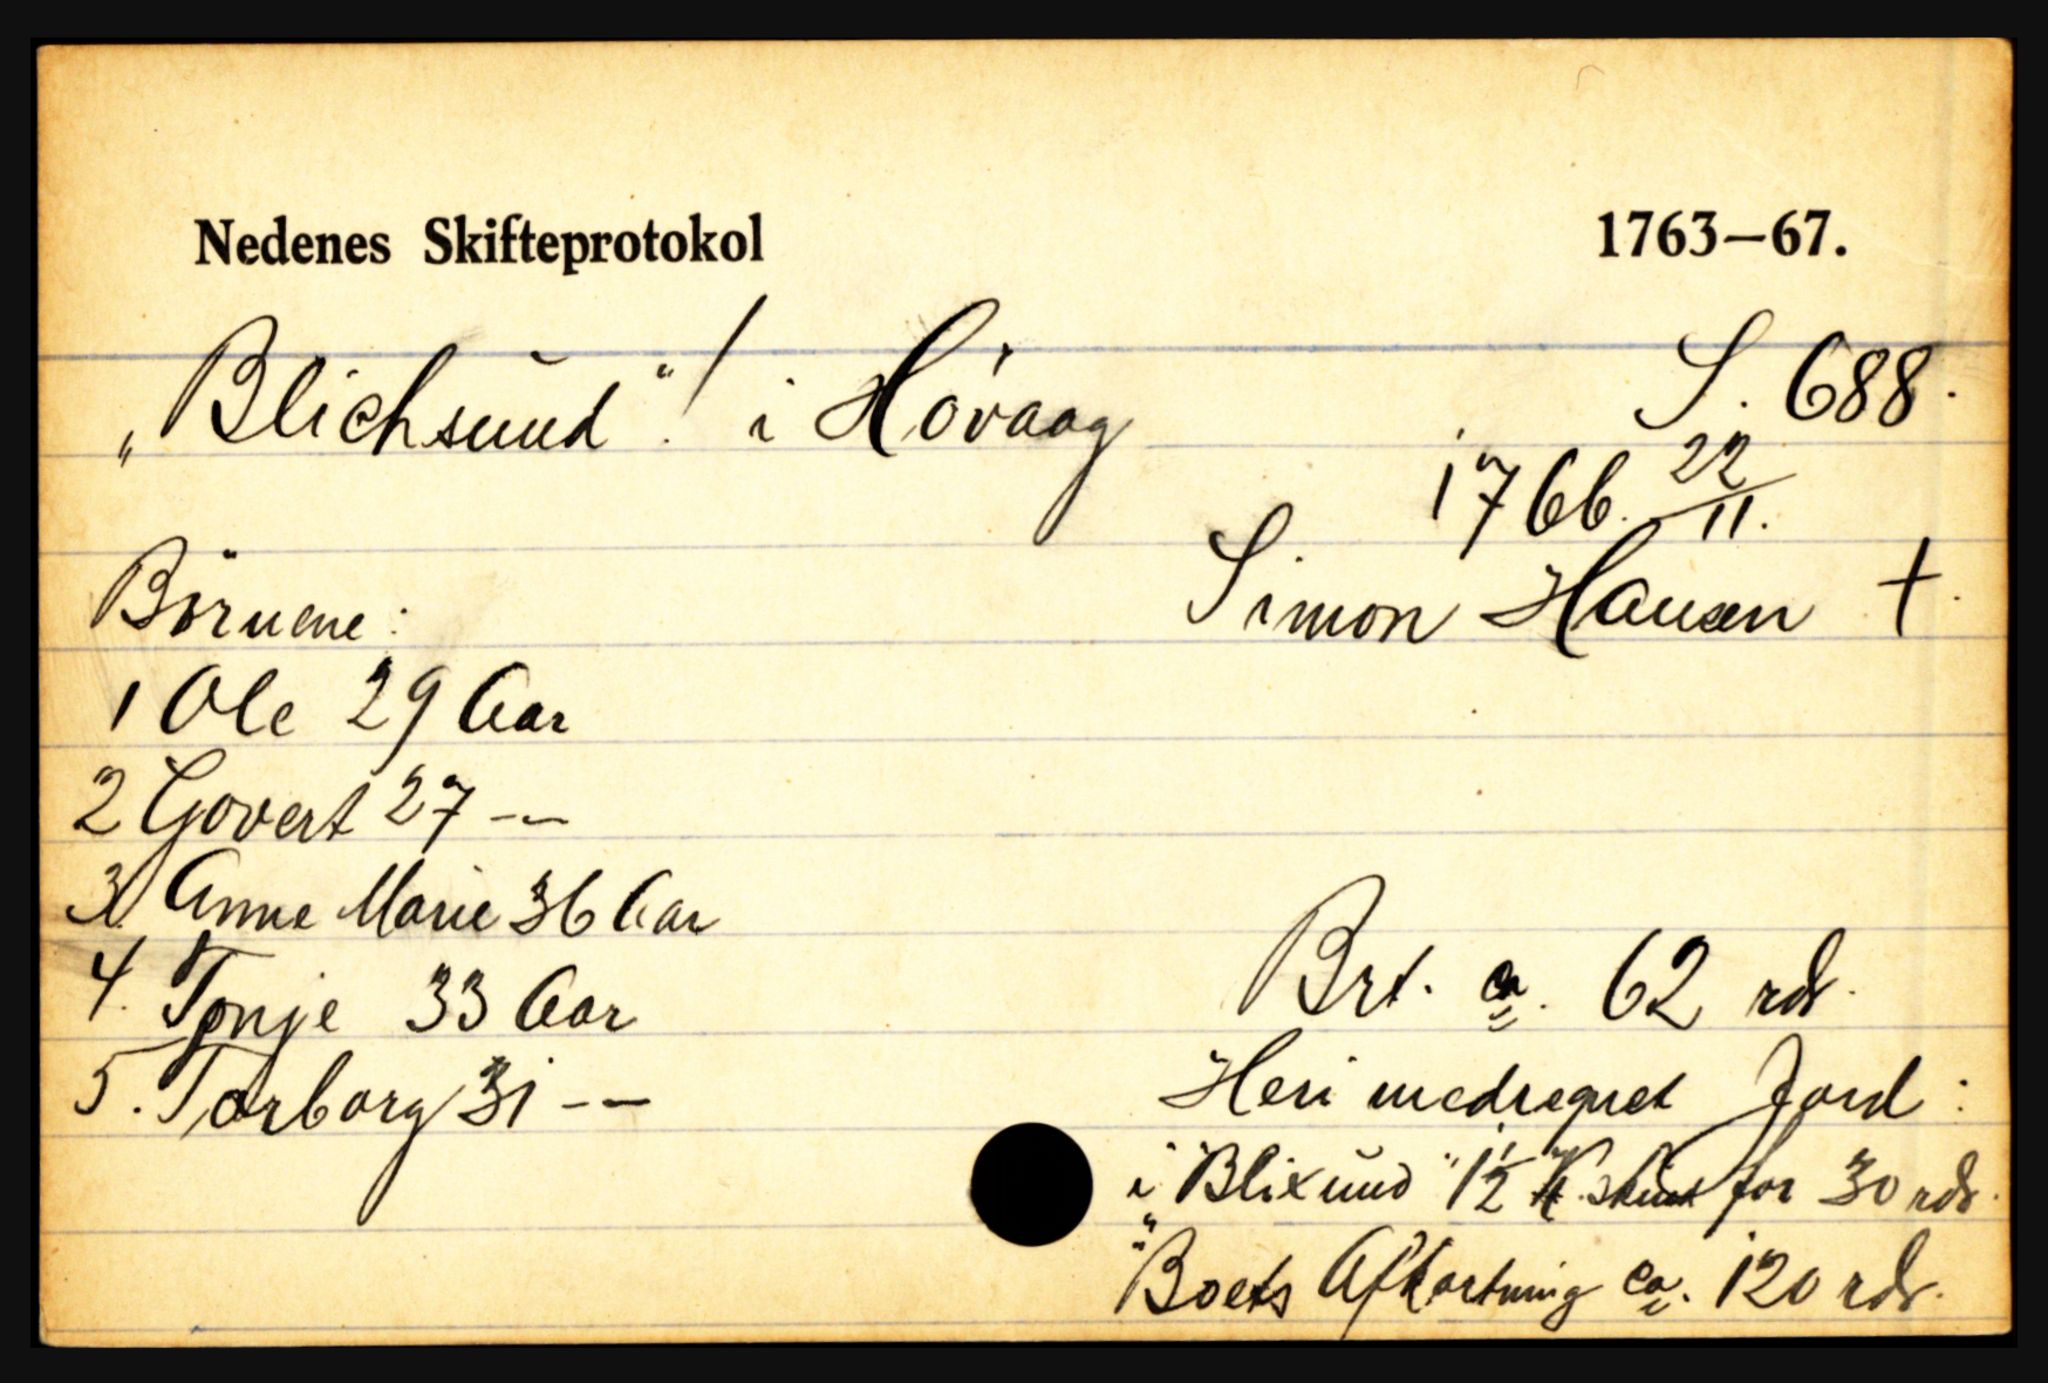 Nedenes Skifteprotokol 1763—67.
„Blichsund“! i Høvaag S. 688.
1766. 22/11.
Simon Hansen †.
Börnene:
1 Ole 29 Aar
2 Govert 27 —
3. Anne Marie 36 Aar
4. Tonje 33 Aar
5. Torborg 31 — —
Brt. ca. 62 rds.
Heri medregnet Jord:
i "Blixund" 1 1/2 K. skind for 30 rds.
"Boets Afkortning ca. 120 rds.